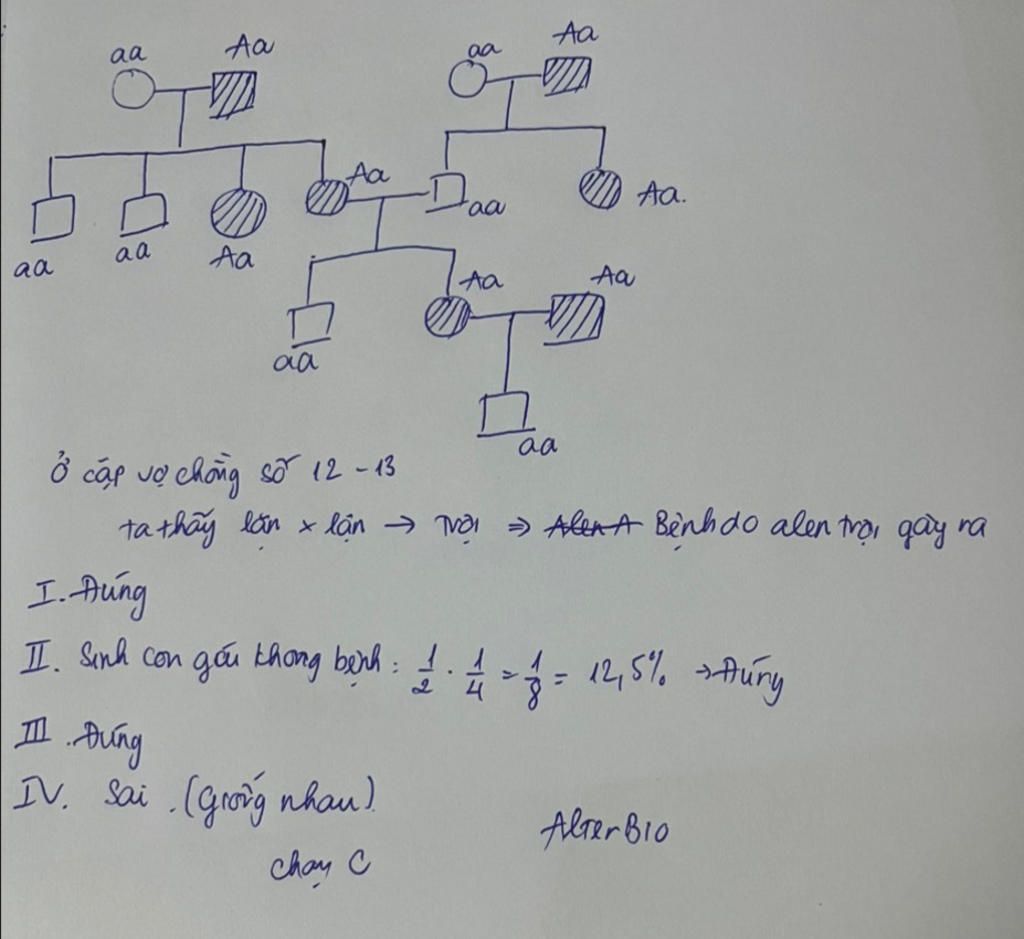 aa Aa aa Aa
Aa
aa Aa.
aa aa Aa
Aa Aa
aa
aa
Ở cặp vợ chồng số 12 - 13
ta thấy lặn x lặn → Trội ⇒ Alen A Bệnh do alen trội gây ra
I. Đúng
II. Sinh con gái không bệnh: 1/2 . 1/4 = 1/8 = 12,5% → Đúng
III. Đúng
IV. Sai. (Giống nhau)
AlterBIO
Chọn C